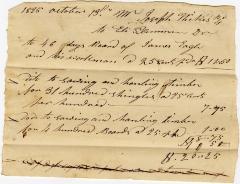 1825 October 13th Mr Joseph
To Dr
to 46 days Board of James
and his workman at 25 cents pr d 11.50
dito to sawing and hauling timber
for 31 hundred shingles at 25 cts
per hundred 7-75
dito to sawing and hauling timber
for 4 hundred Boards at 25 1.00
8.75
20.25